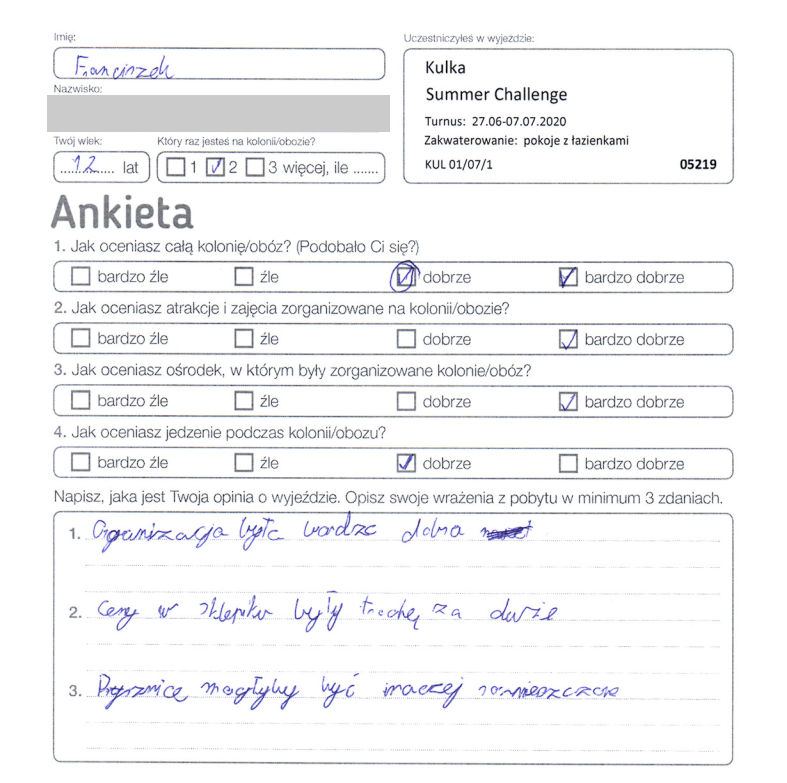 Imię:
Franciszek
Nazwisko:
Twój wiek:
12 lat
Który raz jesteś na kolonii/obozie?
1 2 3 więcej, ile .......
Uczestniczyłeś w wyjeździe:
Kulka
Summer Challenge
Turnus: 27.06-07.07.2020
Zakwaterowanie: pokoje z łazienkami
KUL 01/07/1 05219
Ankieta
1. Jak oceniasz całą kolonię/obóz? (Podobało Ci się?)
bardzo źle źle dobrze bardzo dobrze
2. Jak oceniasz atrakcje i zajęcia zorganizowane na kolonii/obozie?
bardzo źle źle dobrze bardzo dobrze
3. Jak oceniasz ośrodek, w którym były zorganizowane kolonie/obóz?
bardzo źle źle dobrze bardzo dobrze
4. Jak oceniasz jedzenie podczas kolonii/obozu?
bardzo źle źle dobrze bardzo dobrze
Napisz, jaka jest Twoja opinia o wyjeździe. Opisz swoje wrażenia z pobytu w minimum 3 zdaniach.
1. Organizacja była bardzo dobra
2. Ceny w sklepiku były trochę za duże
3. Prysznice mogłyby być inaczej